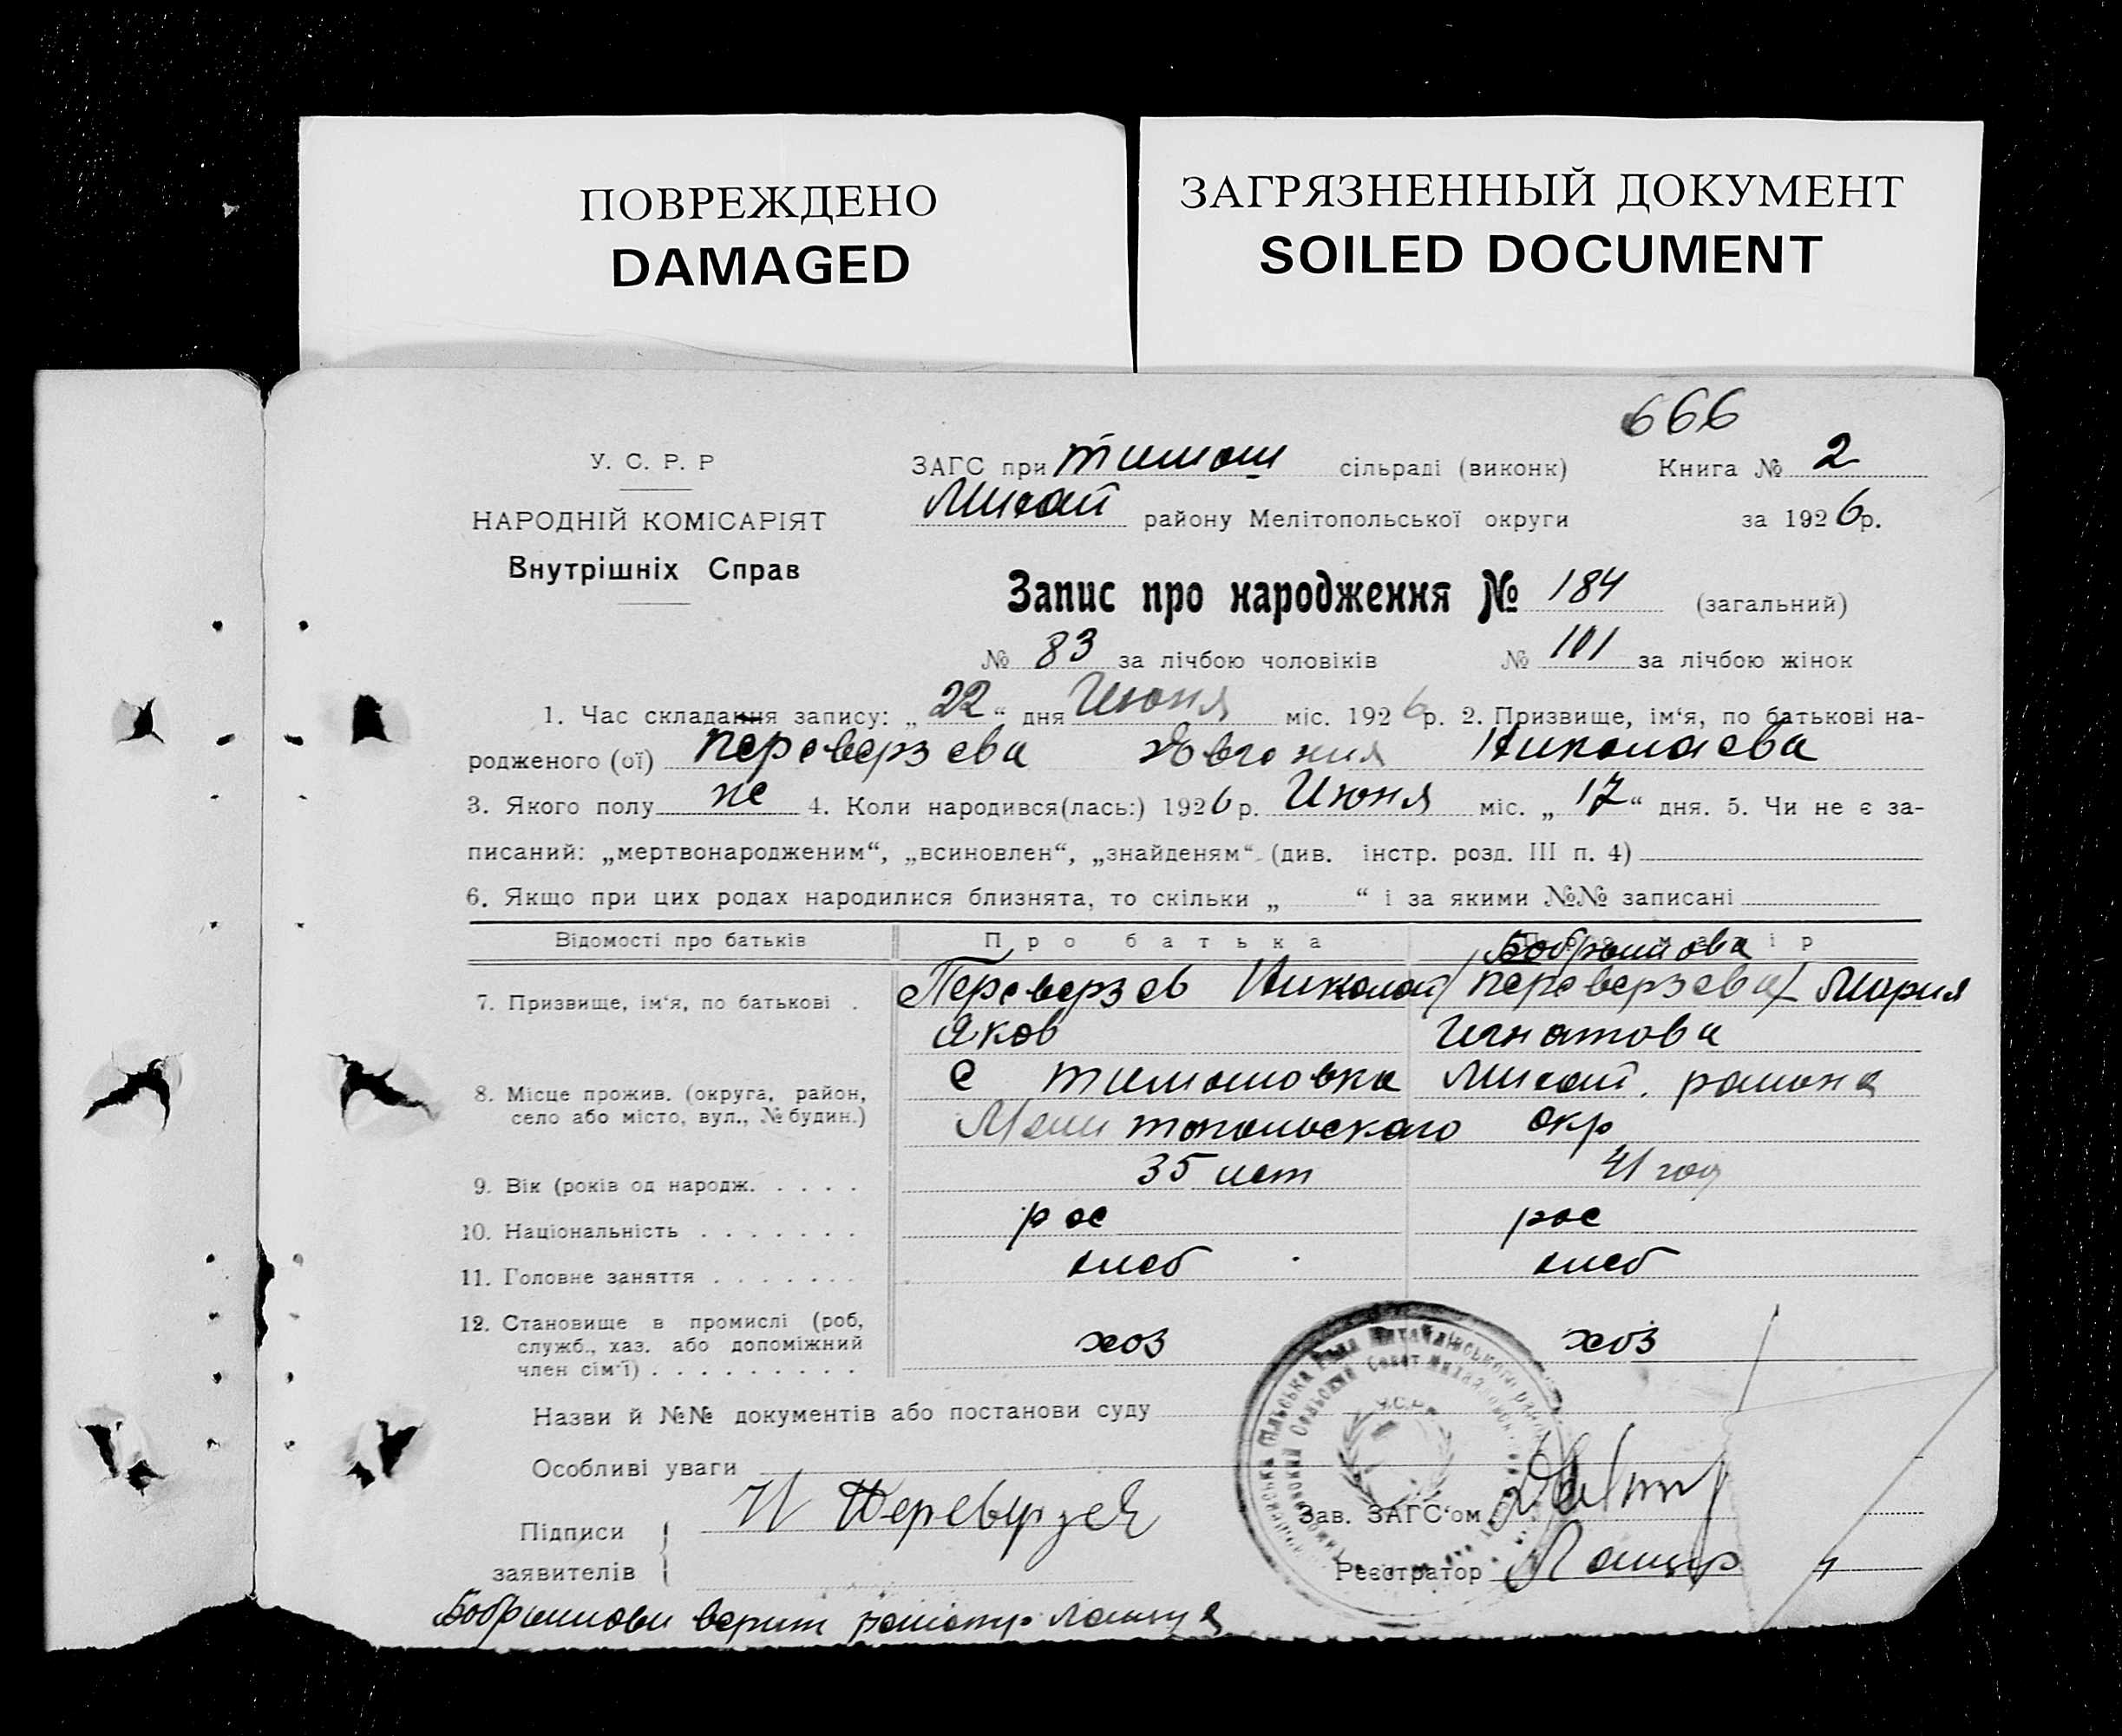 ПОВРЕЖДЕНО
DAMAGED
ЗАГРЯЗНЕННЫЙ ДОКУМЕНТ
SOILED DOCUMENT
666
У. С. Р. Р
НАРОДНІЙ КОМІСАРІЯТ
Внутрішніх Справ
ЗАГС при тимош сільраді (виконк) Книга № 2
Михай району Мелітопольської округи за 1926р.
Запис про народження № 184 (загальний)
№ 83 за лічбою чоловіків № 101 за лічбою жінок
1. Час складання запису: „22“ дня Июня міс. 1926р. 2. Призвище, ім‘я, по батькові на-
родженого (ої) Переверзева Николаева
3. Якого полу же 4. Коли народився(лась:) 1926р. Июня міс. „17“ дня. 5. Чи не є за-
писаний: „мертвонародженим“, „всиновлен“, „знайденям“ (див. інстр. розд. III п. 4)
6. Якщо при цих родах народилися близнята, то скільки „ “ і за якими №№ записані
Відомості про батьків Про батька
Бобрышова
7. Призвище, ім‘я, по батькові . Переверзев Николай /Переверзева/ Мария
Яков Игнатова
8. Місце прожив. (округа, район, с тимошовка Михай. района
село або місто, вул., № будин.) Мелитопольского окр
9. Вік (років од народж. . . . . 35 лет 41 год
10. Національність . . . . . . . рос рос
11. Головне заняття . . . . . . . хлеб хлеб
12. Становище в промислі (роб,
служб., хаз. або допоміжний хоз хоз
член сім‘ї) . . . . . . . . .
Назви й №№ документів або постанови суду
Особливі уваги
Підписи Н Переверзев Зав. ЗАГС‘ом
заявителів Реєстратор